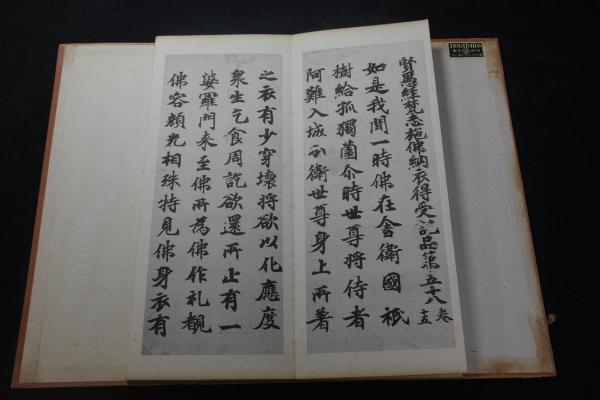 賢愚經梵志施佛納衣得受記品第五十八 卷十五
如是我聞一時佛在舍衛國祇
樹給孤獨園尒時世尊將侍者
阿難入城分衛世尊身上所著
之衣有少穿壞將欲以化應度
衆生乞食周訖欲還所止有一
婆羅門来至佛所為佛作礼覩
佛容顔光相殊特見佛身衣有
ISSEIDO